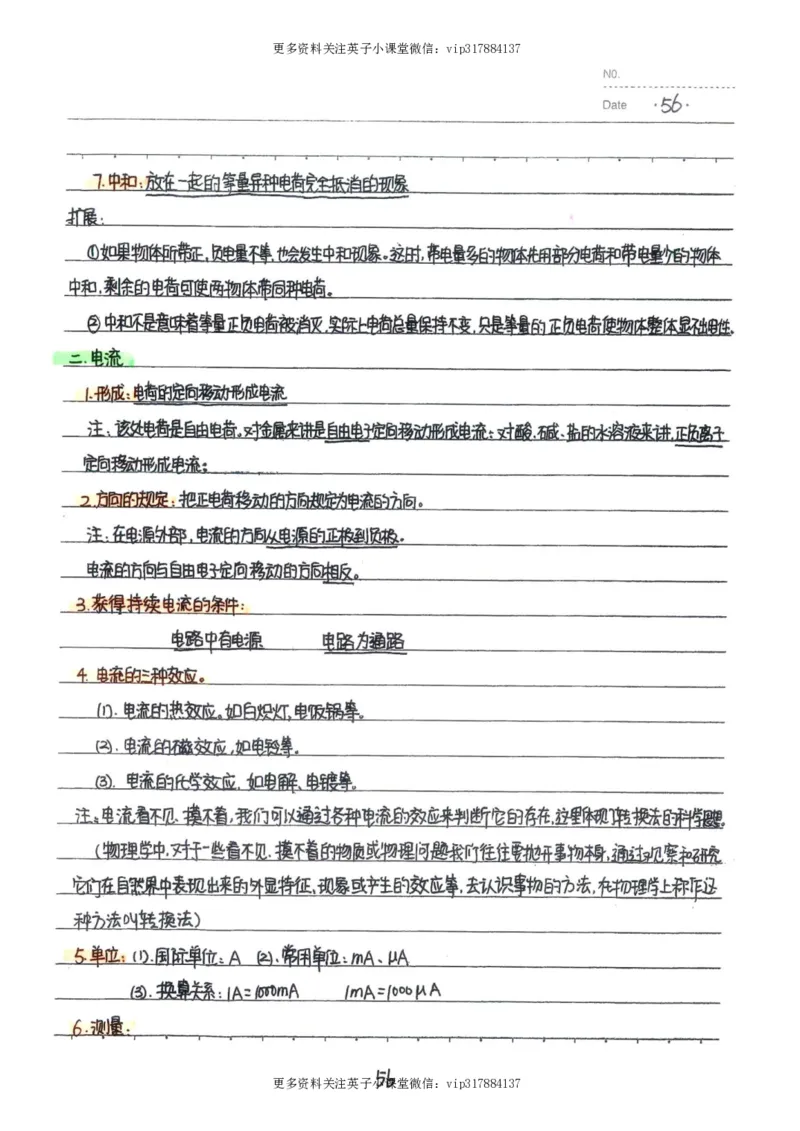 更多资料关注英子小课堂微信：vip317884137
NO.
Date ·56·
7.中和：放在一起的等量异种电荷完全抵消的现象
扩展：
①如果物体所带正，负电量不等，也会发生中和现象。这时，带电量多的物体先用部分电荷和带电量少的物体
中和，剩余的电荷可使两物体带同种电荷。
②中和不是意味着等量正负电荷被消灭，实际上电荷总量保持不变，只是等量的正负电荷使物体整体显不出电性。
二.电流
1.形成：电荷的定向移动形成电流
注：该处电荷是自由电荷。对金属来讲是自由电子定向移动形成电流；对酸、碱、盐的水溶液来讲，正负离子
定向移动形成电流；
2.方向的规定：把正电荷移动的方向规定为电流的方向。
注：在电源外部，电流的方向从电源的正极到负极。
电流的方向与自由电子定向移动的方向相反。
3.获得持续电流的条件：
电路中有电源 电路为通路
4.电流的三种效应。
(1).电流的热效应。如白炽灯，电饭锅等。
(2).电流的磁效应，如电铃等。
(3).电流的化学效应，如电解、电镀等。
注：电流看不见、摸不着，我们可以通过各种电流的效应来判断它的存在，这里体现了转换法的科学思想。
（物理学中，对于一些看不见、摸不着的物质或物理问题我们往往要抛开事物本身，通过观察和研究
它们在自然界中表现出来的外显特征、现象或产生的效应等，去认识事物的方法，在物理学上称作这
种方法叫转换法）
5.单位：(1).国际单位：A (2).常用单位：mA、μA
(3).换算关系：1A=1000mA 1mA=1000μA
6.测量：
56
更多资料关注英子小课堂微信：vip317884137